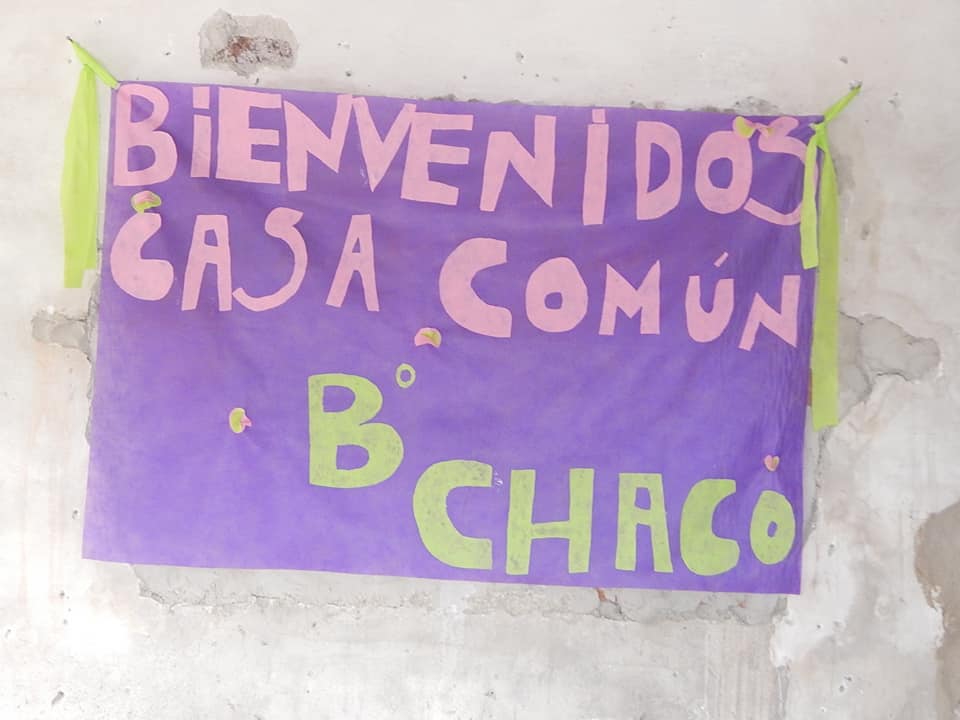 BiENVENIDOS
CASA COMÚN
B°
CHACO